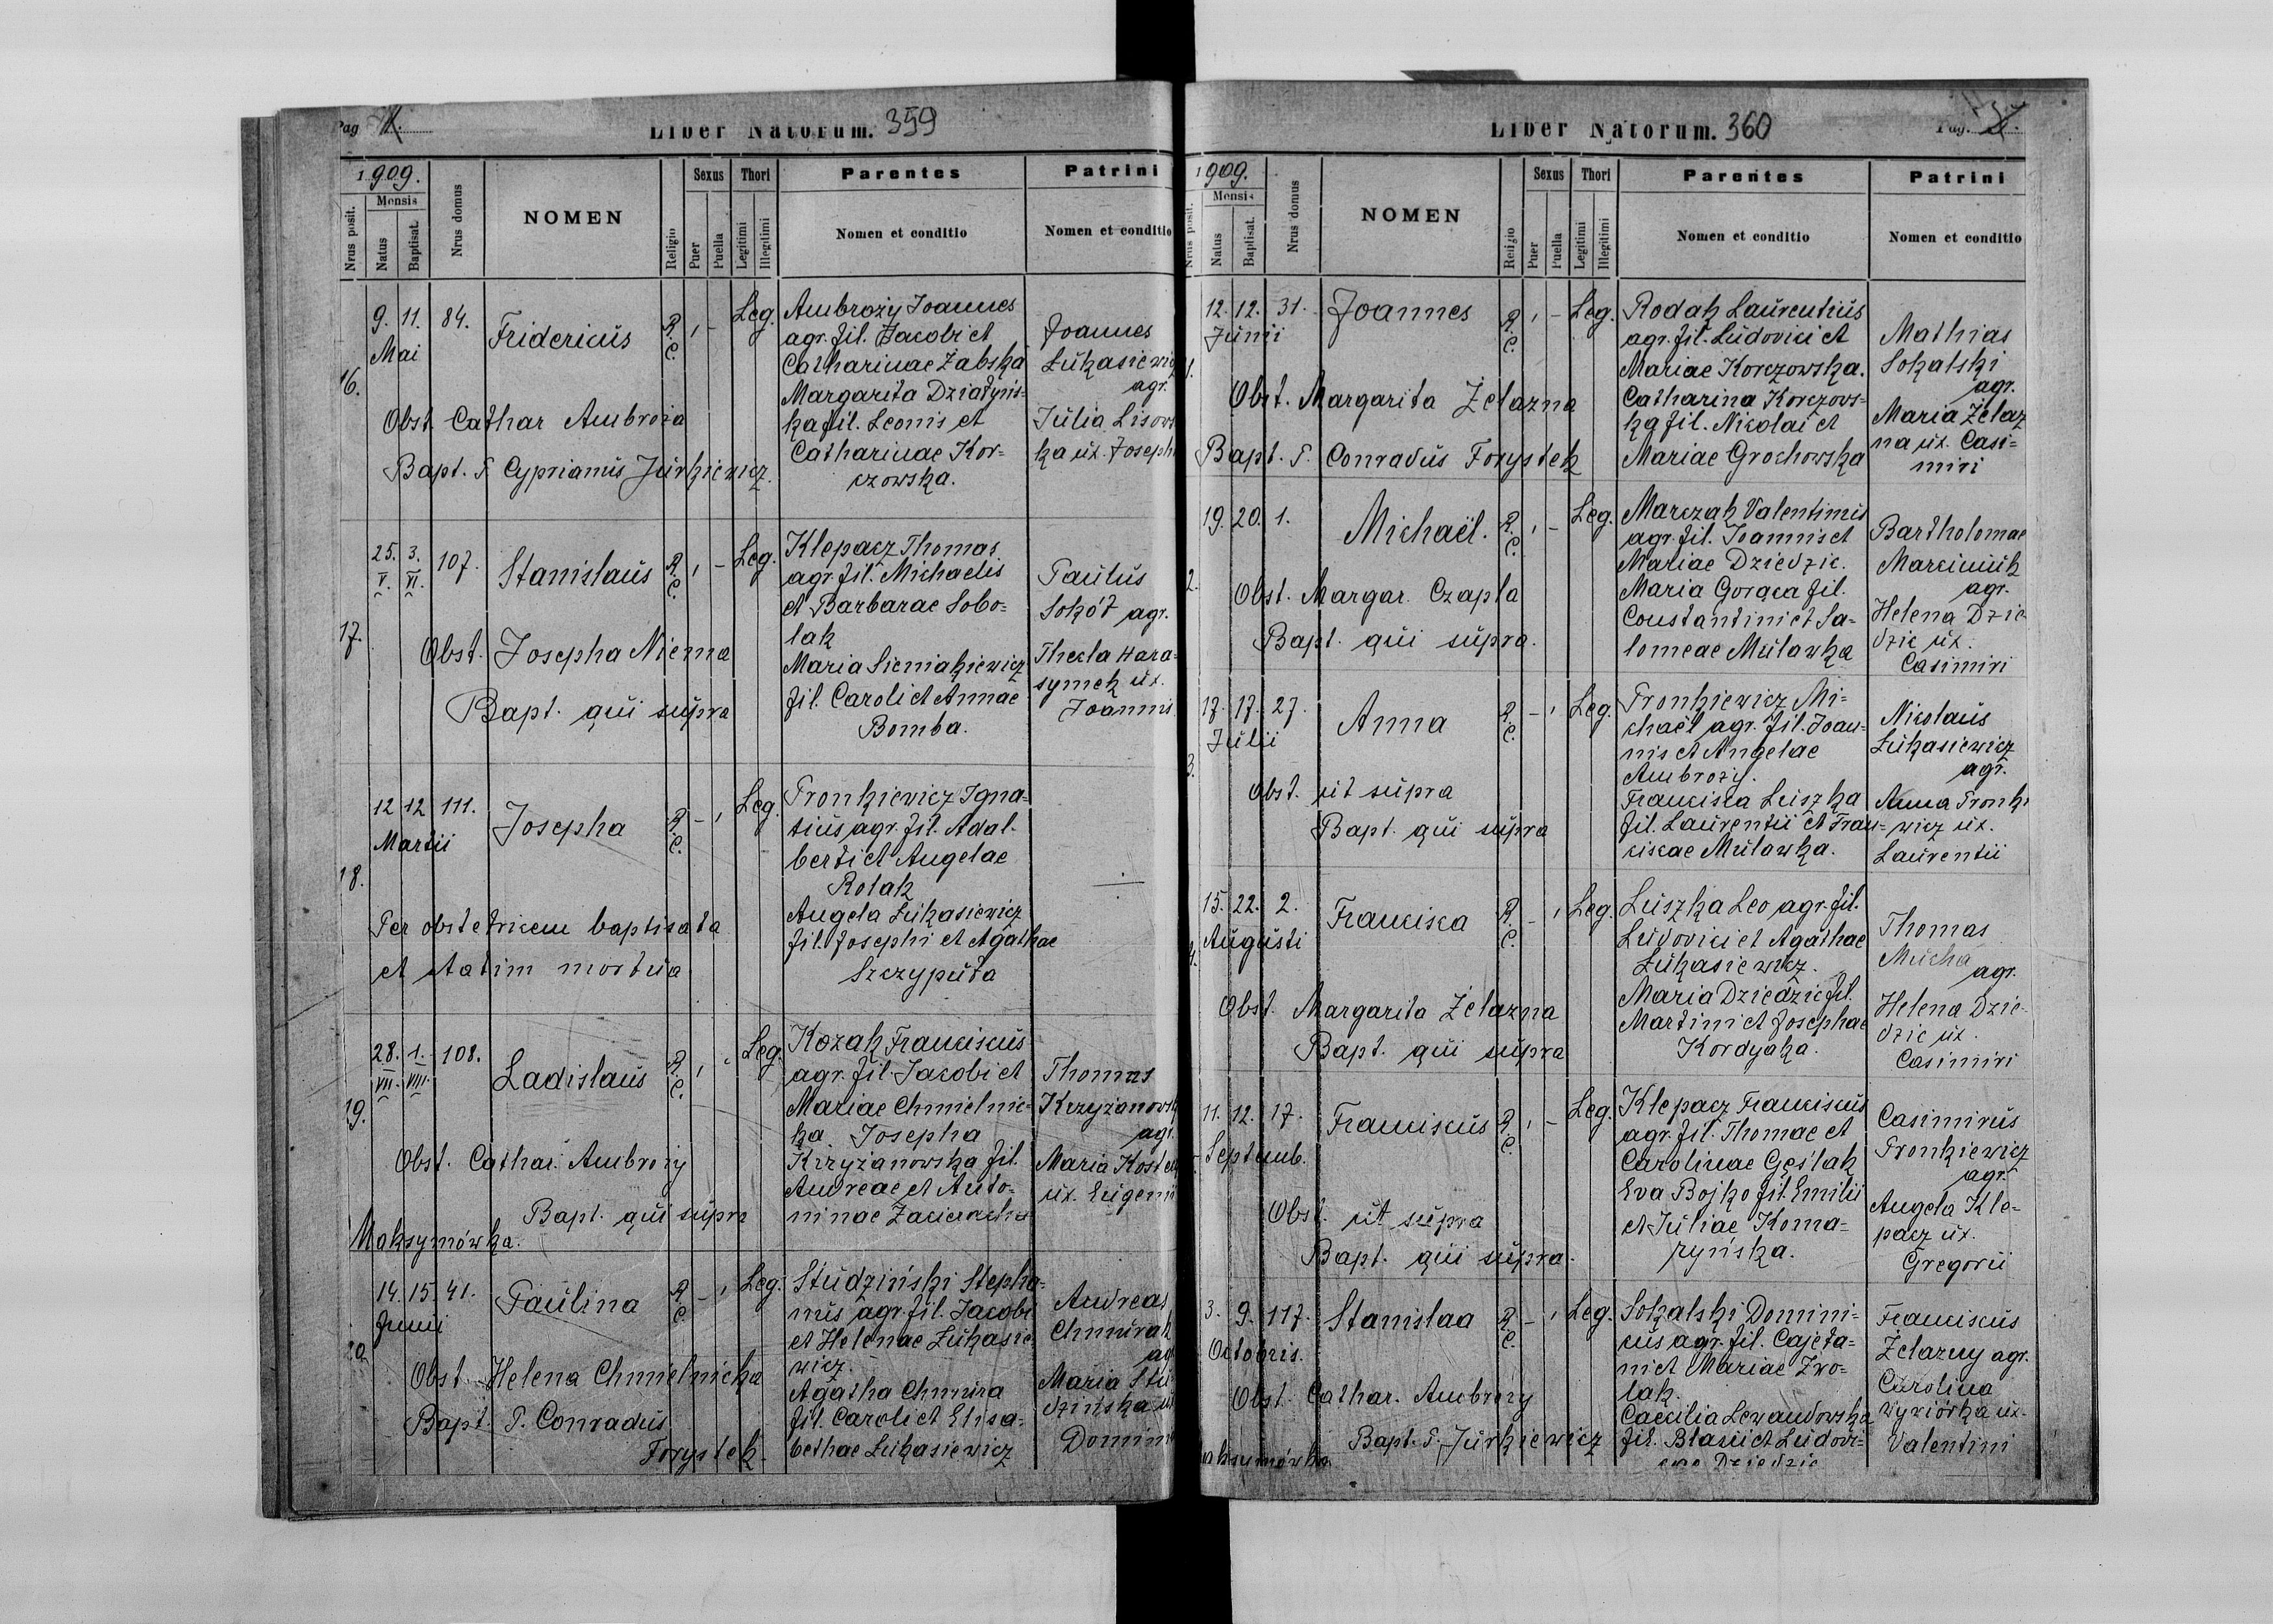 Pag
Liber Natorum. 359
1909.
Mensis
Nrus posit.
Natus
Baptisat.
Nrus domus
NOMEN
Religio
Sexus
Puer
Puella
Thori
Legitimi
Illegitimi
Parentes
Nomen et conditio
Patrini
Nomen et conditio
16.
9. 11. 84.
Mai
Fridericus
R.
C.
Leg.
Ambroży Joannes
agr. fil. Jacobi et
Catharinae Żabska
Margarita Działyńs-
ka fil. Leonis et
Catharinae Kor-
czowska.
Joannes
Łukasiewicz
agr.
Julia Lisows
ka ux. Josephi
Obst. Cathar Ambroża
Bapt. P. Cyprianus Jurkiewicz.
17.
25. 3. 107.
V. VI.
Stanislaus
R.
C.
Leg.
Klepacz Thomas
agr. fil. Michaelis
et Barbarae Sobo-
lak
Maria Sieniakiewicz
fil. Caroli et Annae
Bomba.
Paulus
Sokół agr.
Thecla Hara-
symek ux.
Joannis
Obst. Josepha Niema
Bapt. qui supra
18.
12 12 111.
Martii
Josepha
R.
C.
Leg.
Pronkiewicz Igna-
tius agr. fil. Adal-
berti et Angelae
Rolak
Angela Łukasiewicz
fil. Josephi et Agathae
Szczyputa
Per obstetricem baptisata
et statim mortua
19.
28. 1. 108.
VII. VIII.
Ladislaus
R.
C.
Leg.
Kozak Franciscus
agr. fil. Jacobi et
Mariae Chmielnic-
ka. Josepha
Krzyżanowska fil.
Andreae et Anto-
ninae
Thomas
Krzyżanowsk
agr.
Maria
ux. Eugenii
Obst. Cathar. Ambroży
Bapt. qui supra
Maksymówka.
20
14. 15. 41.
Junii
Paulina
R.
C.
Leg.
Studziński Stepha-
nus agr. fil. Jacobi
et Helenae Łukasie
wicz.
Agatha Chmura
fil. Caroli et Elisa-
bethae Łukasiewicz
Andreas
Chmurak
ag
Maria Stu
dzińska ux
Domini
Obst. Helena Chmielnicka
Bapt. P. Conradus
Forystek.
Liber Natorum. 360
Pag.
1909.
Mensis
Nrus posit.
Natus
Baptisat.
Nrus domus
NOMEN
Religio
Sexus
Puer
Puella
Thori
Legitimi
Illegitimi
Parentes
Nomen et conditio
Patrini
Nomen et conditio
1.
12. 12. 31.
Junii
Joannes
R.
C.
Leg.
Rodak Laurentius
agr. fil. Ludovici et
Mariae Korczowska.
Catharina Korczows-
ka fil. Nicolai et
Mariae Grochowska
Mathias
Sokalski
agr.
Maria Żelaz
na ux. Casi-
miri
Obst. Margarita Żelazna
Bapt. P. Conradus Forystek
2.
19. 20. 1.
Michaël.
R.
C.
Leg.
Marczak Valentinus
agr. fil. Joannis et
Mariae Dziedzic.
Maria Gorąca fil.
Constantini et Sa-
lomeae Mulawka
Bartholomae
Marciniuk
agr.
Helena Dzie
dzic ux.
Casimiri
Obst. Margar. Czapla
Bapt. qui supra.
3.
17. 17. 27.
Julii
Anna
R.
C.
Leg.
Pronkiewicz Mi-
chaël agr. fil. Joan-
nis et Angelae
Ambroży.
Francisca Luszka
fil. Laurentii et Fran-
ciscae Mulawka.
Nicolaus
Łukasiewicz
agr.
Anna Pronki
wicz ux.
Laurentii
Obst. ut supra
Bapt. qui supra
4.
15. 22. 2.
Augusti
Francisca
R.
C.
Leg.
Luszka Leo agr. fil.
Ludovici et Agathae
Łukasiewicz.
Maria Dziedzic fil.
Martini et Josephae
Kordyaka.
Thomas
Mucha
agr.
Helena Dzie-
dzic ux.
Casimiri
Obst. Margarita Żelazna
Bapt. qui supra
11. 12. 17.
Septemb.
Franciscus
R.
C.
Leg.
Klepacz Franciscus
agr. fil. Thomae et
Carolinae Gęślak
Eva Bojko fil. Emilii
et Juliae Koma-
ryńska.
Casimirus
Pronkiewicz
agr.
Angela Kle-
pacz ux.
Gregorii
Obst. ut supra
Bapt. qui supra.
3. 9. 117.
Octobris.
Stanislaa
R.
C.
Leg.
Sokalski Domini-
cus agr. fil. Cajeta-
ni et Mariae Zro-
lak.
Caecilia Lewandowska
fil. Blasii et Ludovi-
cae Dziedzic
Franciscus
Żelazny agr.
Carolina
Wywiórka ux.
Valentini
Obst. Cathar. Ambroży
Bapt. P. Jurkiewicz
aksymówka